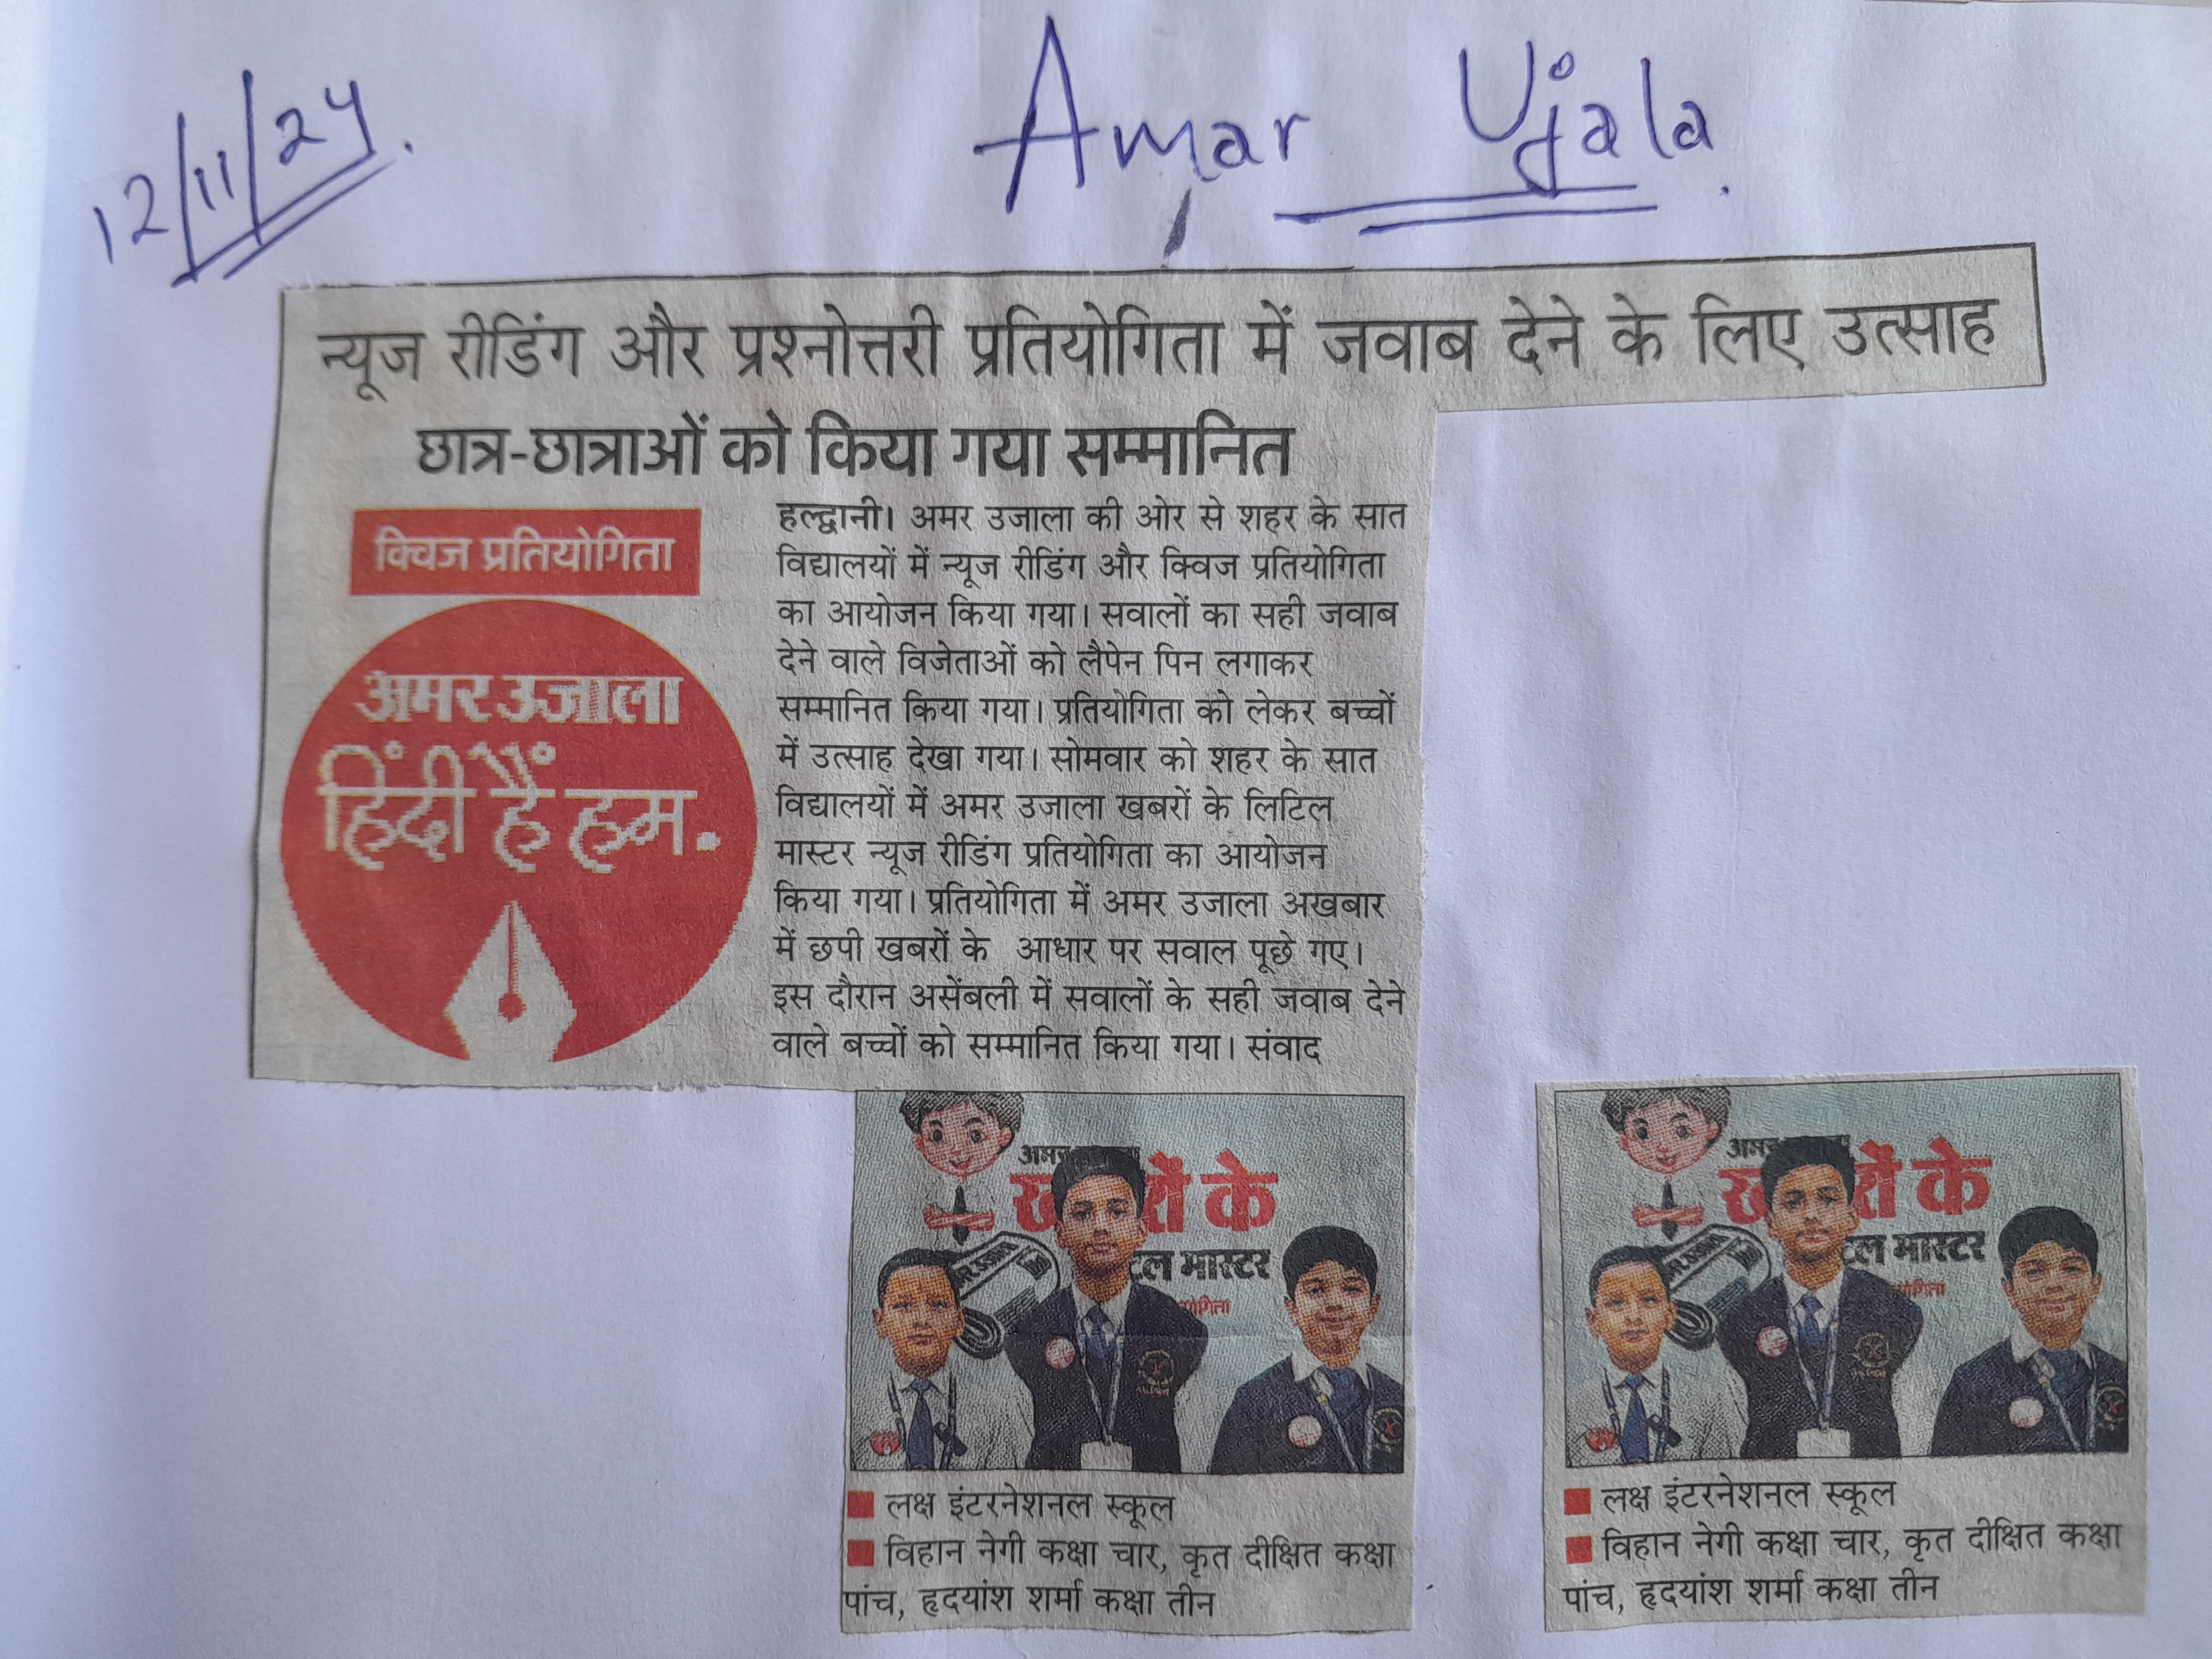 12/11/24.
Amar Ujala.
न्यूज रीडिंग और प्रश्नोत्तरी प्रतियोगिता में जवाब देने के लिए उत्साह
छात्र-छात्राओं को किया गया सम्मानित
क्विज प्रतियोगिता
अमर उजाला
हिंदी हैं हम.
हल्द्वानी। अमर उजाला की ओर से शहर के सात
विद्यालयों में न्यूज रीडिंग और क्विज प्रतियोगिता
का आयोजन किया गया। सवालों का सही जवाब
देने वाले विजेताओं को लैपेन पिन लगाकर
सम्मानित किया गया। प्रतियोगिता को लेकर बच्चों
में उत्साह देखा गया। सोमवार को शहर के सात
विद्यालयों में अमर उजाला खबरों के लिटिल
मास्टर न्यूज रीडिंग प्रतियोगिता का आयोजन
किया गया। प्रतियोगिता में अमर उजाला अखबार
में छपी खबरों के आधार पर सवाल पूछे गए।
इस दौरान असेंबली में सवालों के सही जवाब देने
वाले बच्चों को सम्मानित किया गया। संवाद
के
मास्टर
लक्ष इंटरनेशनल स्कूल
विहान नेगी कक्षा चार, कृत दीक्षित कक्षा
पांच, हृदयांश शर्मा कक्षा तीन
के
मास्टर
लक्ष इंटरनेशनल स्कूल
विहान नेगी कक्षा चार, कृत दीक्षित कक्षा
पांच, हृदयांश शर्मा कक्षा तीन